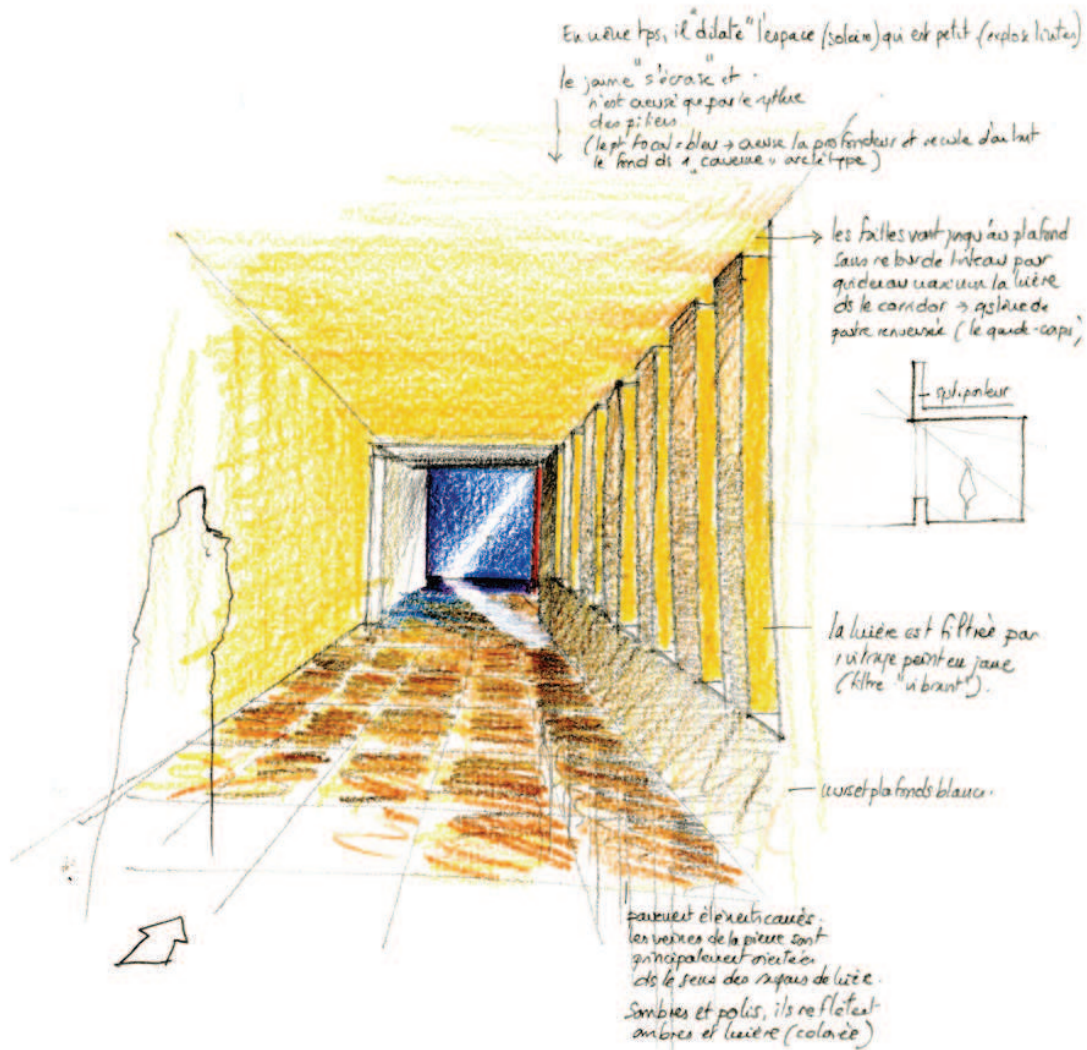 En même tps, il "dilate" l'espace (solaire) qui est petit (explose limites)
le jaune "s'écrase" et
n'est creusé que par le rythme
des piliers
(le pt focal = bleu → creuse la profondeur et recule d'autant
le fond ds 1 "caverne" archétype)
les failles vont jusqu'au plafond
sans rebord de linteau pour
guider au maximum la lumière
ds le corridor → système de
poutre renversée (le garde-corps)
spt. porteur
la lumière est filtrée par
1 vitrage peint en jaune
(filtre "vibrant").
murs et plafonds blancs.
pavement éléments carrés.
les veines de la pierre sont
principalement orientées
ds le sens des rayons de lumière.
Sombres et polis, ils reflètent
ombres et lumière (colorée)